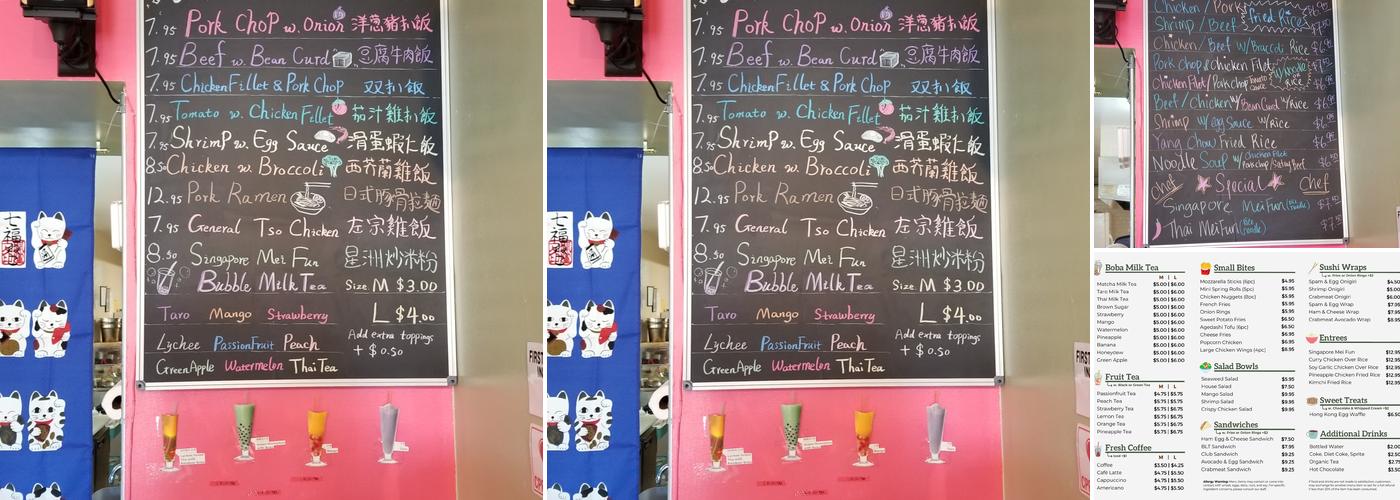 7.95 Pork Chop w. Onion 洋蔥豬扒飯
7.95 Beef w. Bean Curd 豆腐牛肉飯
7.95 Chicken Fillet & Pork Chop 双扒飯
7.95 Tomato w. Chicken Fillet 茄汁雞扒飯
7.95 Shrimp w. Egg Sauce 滑蛋蝦仁飯
8.50 Chicken w. Broccoli 西芥蘭雞飯
12.95 Pork Ramen 日式豚骨拉麵
7.95 General Tso Chicken 左宗雞飯
8.50 Singapore Mei Fun 星洲炒米粉
Bubble Milk Tea Size M $3.00
Taro Mango Strawberry L $4.00
Lychee PassionFruit Peach Add extra toppings
+ $0.50
GreenApple Watermelon ThaiTea
FIRST
7.95 Pork Chop w. Onion 洋蔥豬扒飯
7.95 Beef w. Bean Curd 豆腐牛肉飯
7.95 Chicken Fillet & Pork Chop 双扒飯
7.95 Tomato w. Chicken Fillet 茄汁雞扒飯
7.95 Shrimp w. Egg Sauce 滑蛋蝦仁飯
8.50 Chicken w. Broccoli 西芥蘭雞飯
12.95 Pork Ramen 日式豚骨拉麵
7.95 General Tso Chicken 左宗雞飯
8.50 Singapore Mei Fun 星洲炒米粉
Bubble Milk Tea Size M $3.00
Taro Mango Strawberry L $4.00
Lychee PassionFruit Peach Add extra toppings
+ $0.50
GreenApple Watermelon ThaiTea
Chicken / Pork
Shrimp / Beef Fried Rice
Chicken / Beef w/ Broccoli Rice
Pork Chop & Chicken Filet
Chicken Filet / Pork Chop Tomato Sauce Rice
Beef / Chicken w/ Bean Curd w/ Rice
Shrimp w/ egg Sauce w/ Rice
Yang Chow Fried Rice
Noodle Soup w/ Chicken Filet
Chef Special Chef
Singapore Mei Fun
Thai Mei Fun
Boba Milk Tea
M | L
Matcha Milk Tea $5.00 | $6.00
Taro Milk Tea $5.00 | $6.00
Thai Milk Tea $5.00 | $6.00
Brown Sugar $5.00 | $6.00
Strawberry $5.00 | $6.00
Mango $5.00 | $6.00
Watermelon $5.00 | $6.00
Pineapple $5.00 | $6.00
Banana $5.00 | $6.00
Honeydew $5.00 | $6.00
Green Apple $5.00 | $6.00
Fruit Tea
w. Black or Green Tea M | L
Passionfruit Tea $4.75 | $5.75
Peach Tea $4.75 | $5.75
Strawberry Tea $4.75 | $5.75
Lemon Tea $4.75 | $5.75
Orange Tea $4.75 | $5.75
Pineapple Tea $4.75 | $5.75
Fresh Coffee
M | L
Coffee $3.50 | $4.25
Café Latte $4.75 | $5.50
Cappuccino $4.75 | $5.50
Americano $4.75 | $5.50
Small Bites
Mozzarella Sticks (6pc) $4.95
Mini Spring Rolls (5pc) $5.95
Chicken Nuggets (8pc) $5.95
French Fries $5.95
Onion Rings $5.95
Sweet Potato Fries $6.50
Agedashi Tofu (6pc) $6.50
Cheese Fries $6.95
Popcorn Chicken $6.95
Large Chicken Wings (4pc) $8.95
Salad Bowls
Seaweed Salad $5.95
House Salad $7.50
Mango Salad $9.95
Shrimp Salad $9.95
Crispy Chicken Salad $9.95
Sandwiches
w. Fries or Onion Rings +$2
Ham Egg & Cheese Sandwich $7.50
BLT Sandwich $7.95
Club Sandwich $9.25
Avocado & Egg Sandwich $9.25
Crabmeat Sandwich $9.25
Sushi Wraps
w. Fries or Onion Rings +$2
Spam & Egg Onigiri $4.50
Shrimp Onigiri $5.00
Crabmeat Onigiri $6.00
Spam & Egg Wrap $7.95
Ham & Cheese Wrap $7.95
Crabmeat Avocado Wrap $8.95
Entrees
Singapore Mei Fun $12.95
Curry Chicken Over Rice $12.95
Soy Garlic Chicken Over Rice $12.95
Pineapple Chicken Fried Rice $12.95
Kimchi Fried Rice $12.95
Sweet Treats
w. Chocolate & Whipped Cream +$2
Hong Kong Egg Waffle $6.50
Additional Drinks
Bottled Water $2.00
Coke, Diet Coke, Sprite $2.50
Organic Tea $2.75
Hot Chocolate $3.50